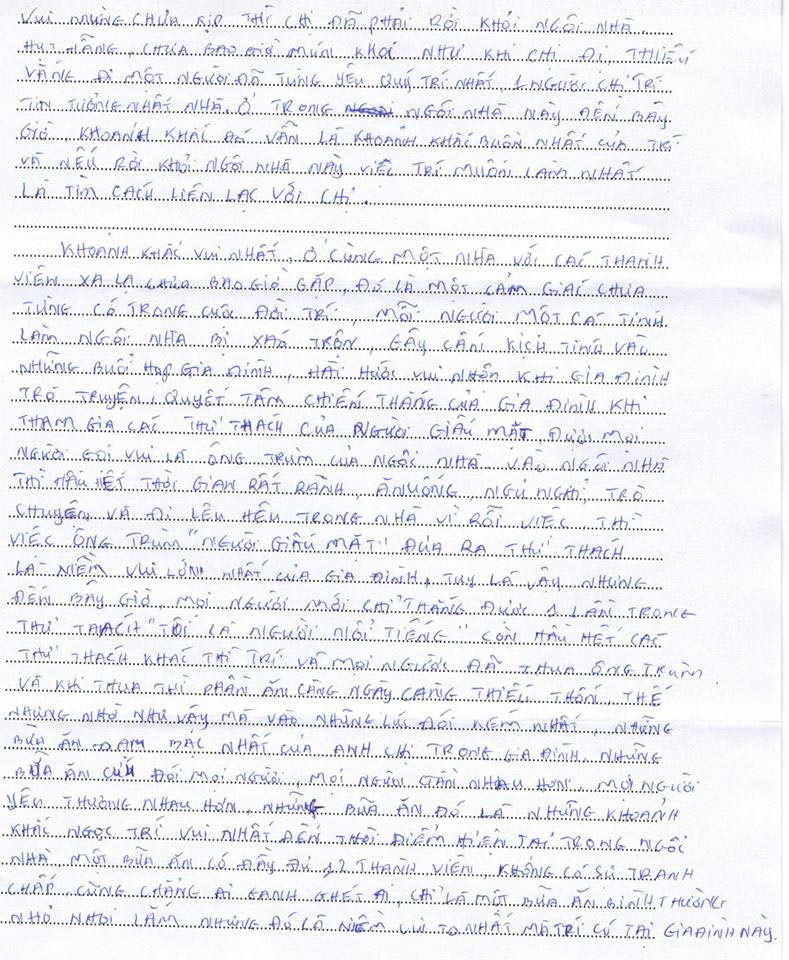 VUI MỪNG CHƯA KỊP THÌ CHỊ ĐÃ PHẢI RỜI KHỎI NGÔI NHÀ,
HỤT HẪNG, CHƯA BAO GIỜ MUỐN KHÓC NHƯ KHI CHỊ ĐI, THIẾU
VẮNG ĐI MỘT NGƯỜI ĐÃ TỪNG YÊU QUÝ TRÍ NHẤT, 1 NGƯỜI CHỊ TRÍ
TIN TƯỞNG NHẤT NHÀ. Ở TRONG NGÔI NHÀ NÀY ĐẾN BÂY
GIỜ, KHOẢNH KHẮC ĐÓ VẪN LÀ KHOẢNH KHẮC BUỒN NHẤT CỦA TRÍ
VÀ NẾU RỜI KHỎI NGÔI NHÀ NÀY VIỆC TRÍ MUỐN LÀM NHẤT
LÀ TÌM CÁCH LIÊN LẠC VỚI CHỊ.
KHOẢNH KHẮC VUI NHẤT, Ở CÙNG MỘT NHÀ VỚI CÁC THÀNH
VIÊN XA LẠ CHƯA BAO GIỜ GẶP, ĐÓ LÀ MỘT CẢM GIÁC CHƯA
TỪNG CÓ TRONG CUỘC ĐỜI TRÍ, MỖI NGƯỜI MỘT CÁ TÍNH
LÀM NGÔI NHÀ BỊ XÁO TRỘN, GÂY CẤN KỊCH TÍNH VÀO
NHỮNG BUỔI HỌP GIA ĐÌNH, HÀI HƯỚC VUI NHỘN KHI GIA ĐÌNH
TRÒ TRUYỆN, QUYẾT TÂM CHIẾN THẮNG CỦA GIA ĐÌNH KHI
THAM GIA CÁC THỬ THÁCH CỦA NGƯỜI GIẤU MẶT, ĐƯỢC MỌI
NGƯỜI GỌI VUI LÀ ÔNG TRÙM CỦA NGÔI NHÀ. VÀO NGÔI NHÀ
THÌ HẦU HẾT THỜI GIAN RẤT RÃNH, ĂN UỐNG, NGỦ NGHỈ, TRÒ
CHUYỆN VÀ ĐI LÊU HÊU TRONG NHÀ VÌ RỖI VIỆC, THÌ
VIỆC ÔNG TRÙM "NGƯỜI GIẤU MẶT" ĐƯA RA THỬ THÁCH
LÀ NIỀM VUI LỚN NHẤT CỦA GIA ĐÌNH, TUY LÀ VẬY NHƯNG
ĐẾN BÂY GIỜ, MỌI NGƯỜI MỚI CHỈ THẮNG ĐƯỢC 1 LẦN TRONG
THỬ THÁCH "TÔI LÀ NGƯỜI NỔI TIẾNG" CÒN HẦU HẾT CÁC
THỬ THÁCH KHÁC THÌ TRÍ VÀ MỌI NGƯỜI ĐÃ THUA ÔNG TRÙM.
VÀ KHI THUA THÌ PHẦN ĂN CÀNG NGÀY CÀNG THIẾU THỐN, THẾ
NHƯNG NHỜ NHƯ VẬY MÀ VÀO NHỮNG LÚC ĐÓI KÉM NHẤT, NHỮNG
BỮA ĂN ĐẠM BẠC NHẤT CỦA ANH CHỊ TRONG GIA ĐÌNH, NHỮNG
BỮA ĂN CỨU ĐÓI MỌI NGƯỜI, MỌI NGƯỜI GẦN NHAU HƠN, MỌI NGƯỜI
YÊU THƯƠNG NHAU HƠN, NHỮNG BỮA ĂN ĐÓ LÀ NHỮNG KHOẢNH
KHẮC NGỌC TRÍ VUI NHẤT ĐẾN THỜI ĐIỂM HIỆN TẠI TRONG NGÔI
NHÀ MỘT BỮA ĂN CÓ ĐẦY ĐỦ 12 THÀNH VIÊN, KHÔNG CÓ SỰ TRANH
CHẤP, CŨNG CHẲNG AI GANH GHÉT AI, CHỈ LÀ MỘT BỮA ĂN BÌNH THƯỜNG
NHỎ NHOI LẮM NHƯNG ĐÓ LÀ NIỀM VUI TO NHẤT MÀ TRÍ CÓ TẠI GIA ĐÌNH NÀY.